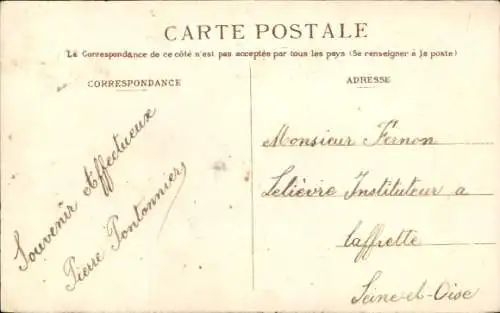 CARTE POSTALE
La Correspondance de ce côté n'est pas acceptée par tous les pays (Se renseigner à la poste)
CORRESPONDANCE
Souvenir Affectueux
Pierre Pontonnier
ADRESSE
Monsieur Fernon
Lelièvre Instituteur a
laffrette
Seine-et-Oise